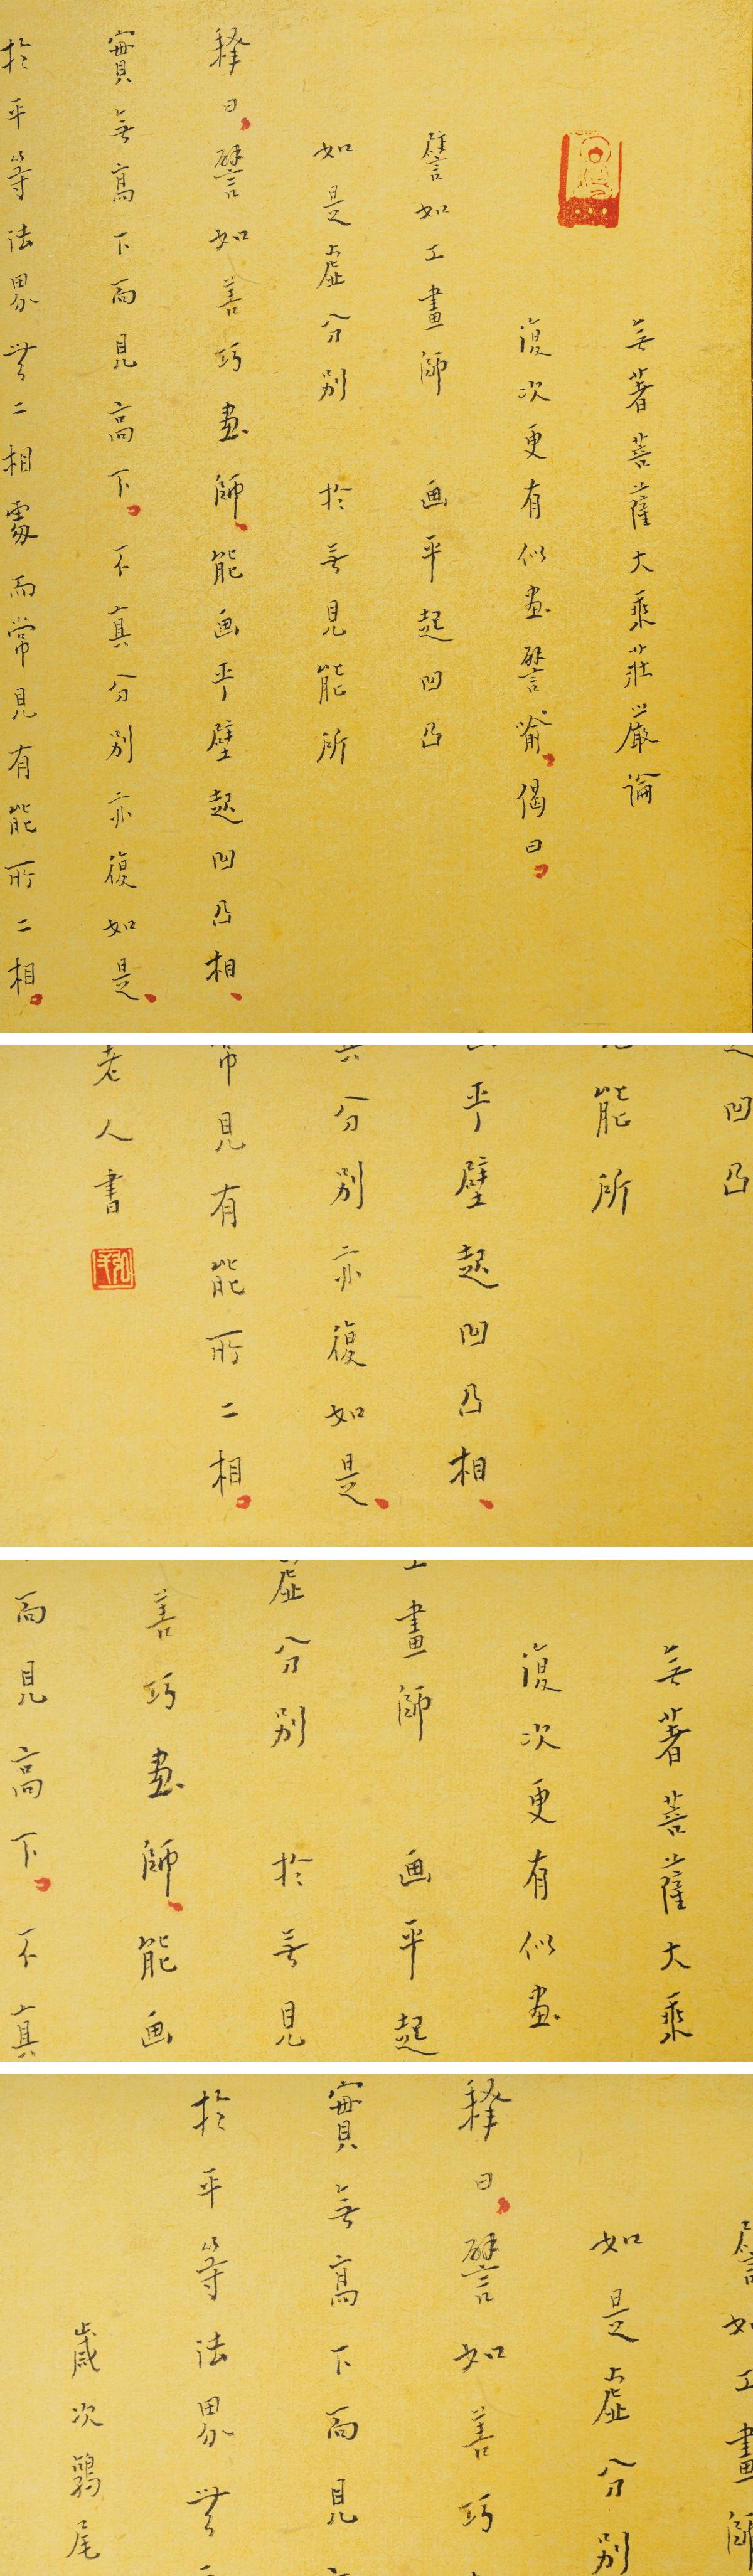 無著菩薩大乘莊嚴論
復次更有似畫譬喻、偈曰。
譬如工畫師 画平起凹凸
如是虛分別 於無見能所
釋曰、譬如善巧畫師、能画平壁起凹凸相、
實無高下而見高下。不真分別亦復如是、
於平等法界無二相處而常見有能所二相。
凹凸
能所
平壁起凹凸相、
分別亦復如是、
常見有能所二相。
老人書
無著菩薩大乘
復次更有似畫
工畫師 画平起
虛分別 於無見
善巧畫師、能画
而見高下。不真
譬如工畫師
如是虛分別
釋曰、譬如善巧
實無高下而見
於平等法界無
歲次鶉尾